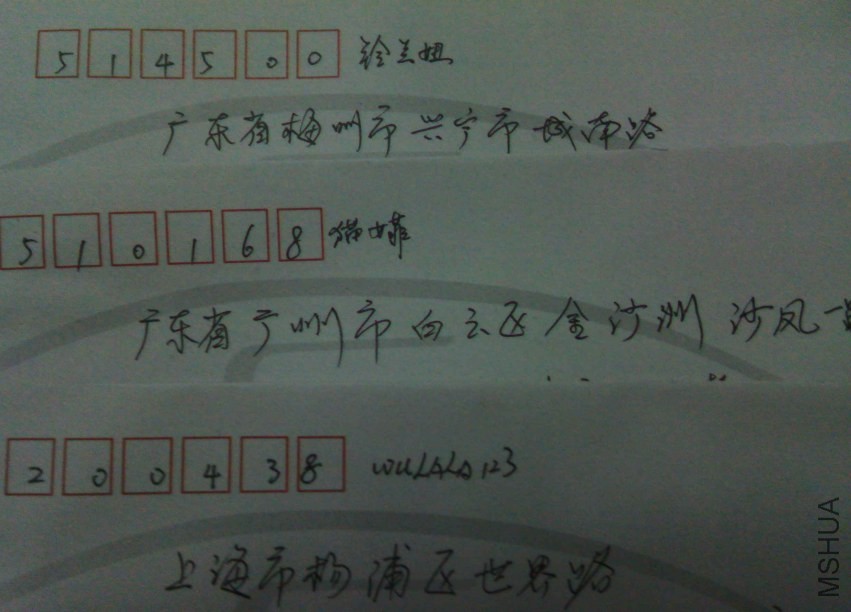 514500 铃兰妞
广东省梅州市兴宁市城南路
510168 猫女菲
广东省广州市白云区金沙洲 沙凤一路
200438 WULALA123
上海市杨浦区世界路
MSHUA